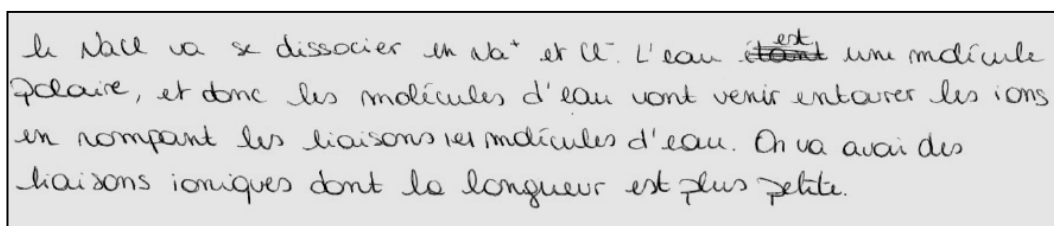 le NaCl va se dissocier en Na⁺ et Cl⁻. L'eau est une molécule
polaire, et donc les molécules d'eau vont venir entourer les ions
en rompant les liaisons molécules d'eau. On va avoir des
liaisons ioniques dont la longueur est plus petite.